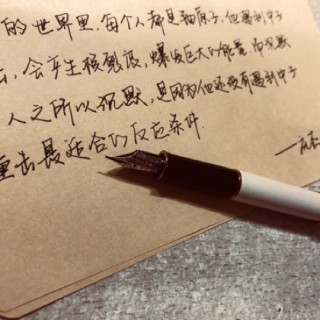 的世界里，每个人都是铀原子，但遇到中子
击，会产生核裂变，爆发巨大的能量，而沉默
人之所以沉默，是因为他还没有遇到中子
重击最适合的反应条件.